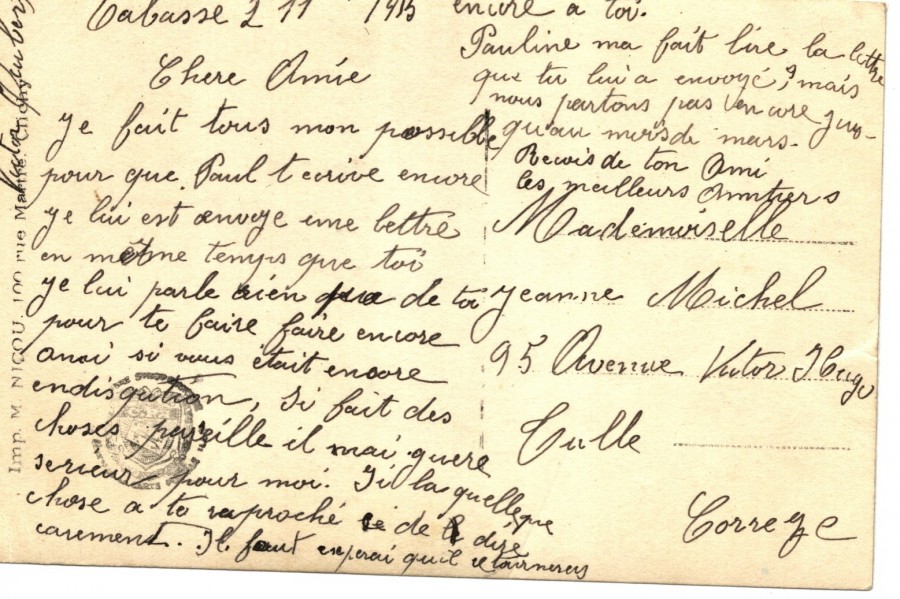 Cabasse 2 11 1915
Chere Amie
Je fait tous mon possible
pour que Paul t ecrive encore
je lui est envoye une lettre
en même temps que toi
je lui parle rien que de toi
pour te faire faire encore
anoi si vous était encore
endisqution, Si fait des
choses pareille il mai guere
serieux pour moi. Si la quelleque
chose a te raproché de dire
carement. Il faut esperai quil
encore a toi.
Pauline ma fait lire la lettre
que tu lui a envoyé, mais
nous partons pas encore jus-
qu'au mois de mars.
Recois de ton Ami
les meilleurs Amitiers
Mademoiselle
Jeanne Michel
95 Avenue Victor Hugo
Tulle
Correze
Imp. M. NICOU, 100 rue Clichy